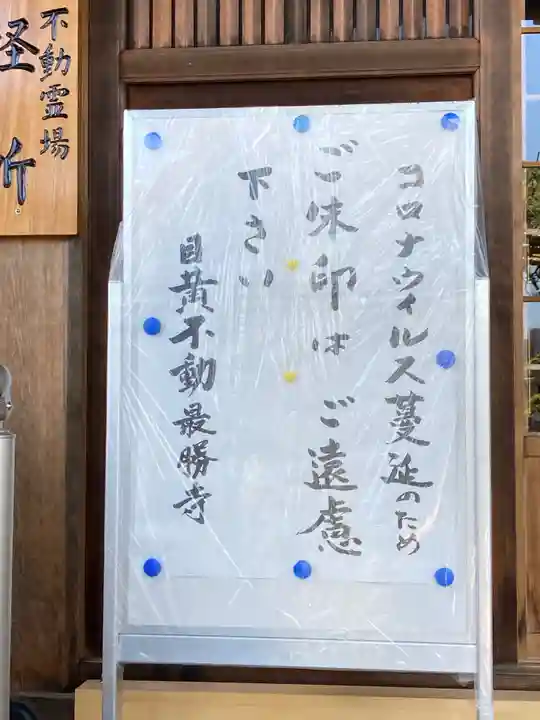 コロナウィルス蔓延のため
ご朱印は ご遠慮
下さい
目黄不動最勝寺
不動霊場